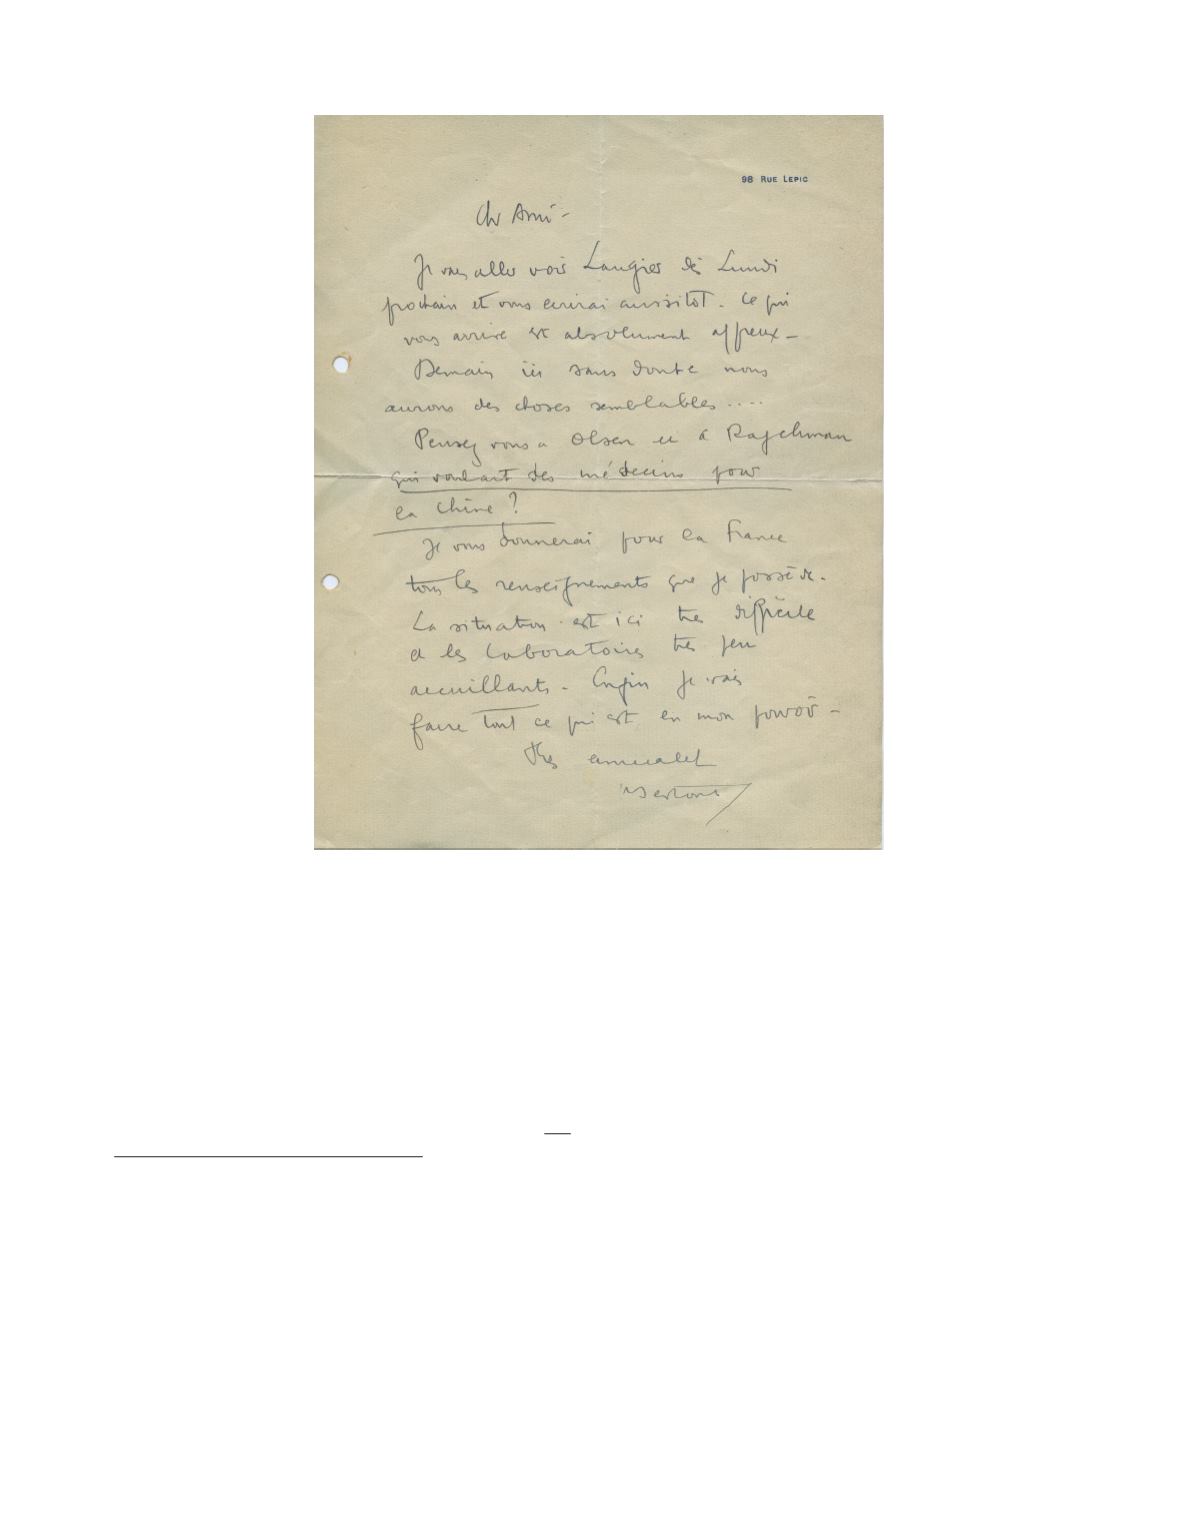 98 RUE LEPIC
Ch Ami -
Je vais aller voir Laugier dès Lundi
prochain et vous écrirai aussitôt. Ce qui
vous arrive est absolument affreux -
Demain ici sans doute nous
aurons des choses semblables ....
Pensez vous a Olsen et à Rajchman
qui voulait des médecins pour
la Chine ?
Je vous donnerai pour la France
tous les renseignements que je possède.
La situation est ici très difficile
et les laboratoires très peu
accueillants - Enfin je vais
faire tout ce qui est en mon pouvoir -
Très amicalet